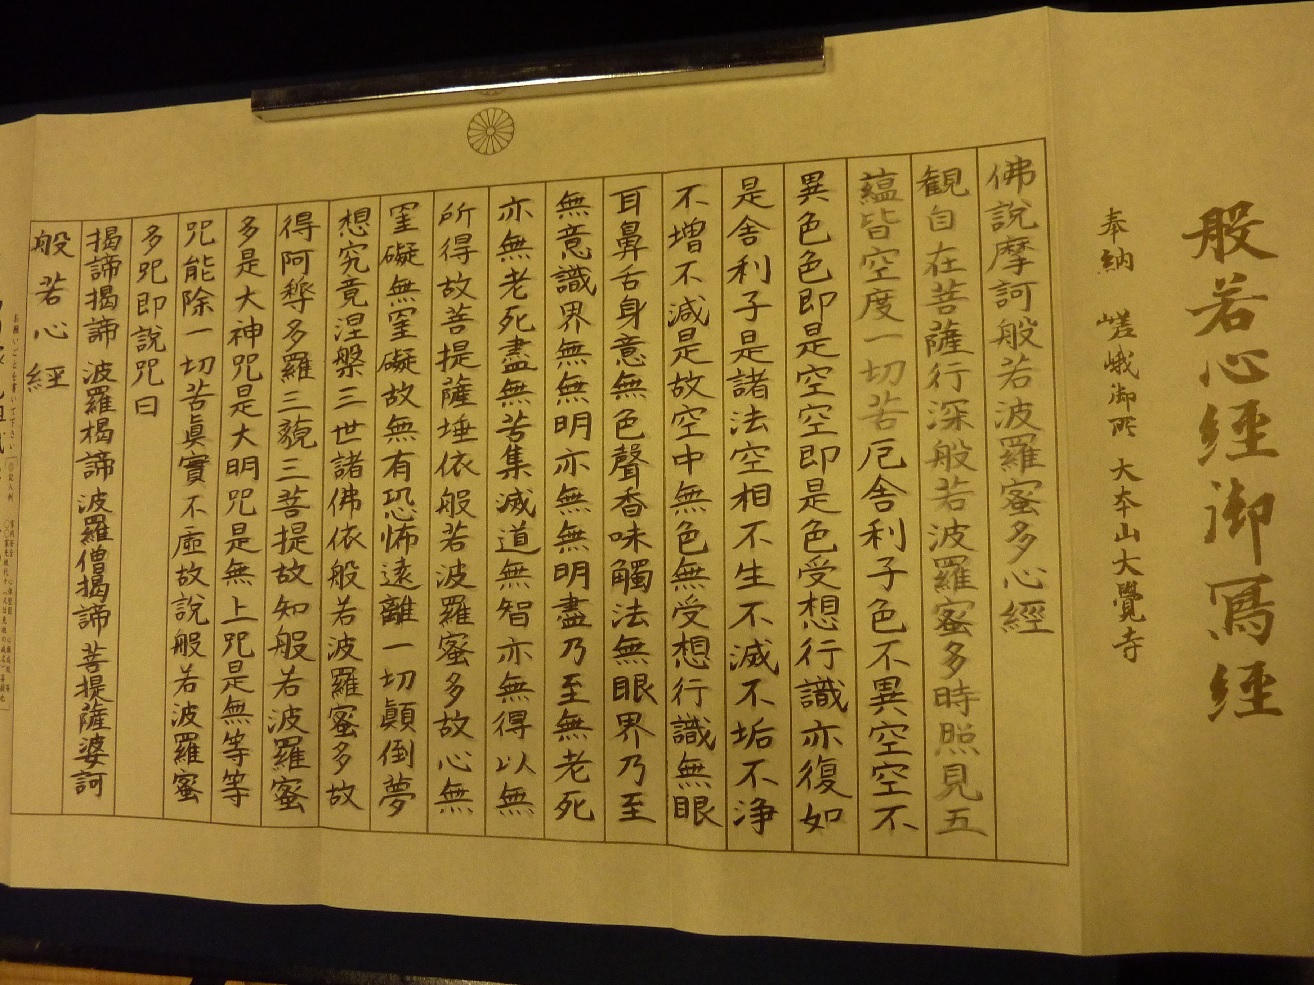 般若心経御写経
奉納 嵯峨御所 大本山大覺寺
佛説摩訶般若波羅蜜多心經
観自在菩薩行深般若波羅蜜多時照見五
蘊皆空度一切苦厄舎利子色不異空空不
異色色即是空空即是色受想行識亦復如
是舎利子是諸法空相不生不滅不垢不浄
不増不減是故空中無色無受想行識無眼
耳鼻舌身意無色聲香味觸法無眼界乃至
無意識界無無明亦無無明盡乃至無老死
亦無老死盡無苦集滅道無智亦無得以無
所得故菩提薩埵依般若波羅蜜多故心無
罣礙無罣礙故無有恐怖遠離一切顛倒夢
想究竟涅槃三世諸佛依般若波羅蜜多故
得阿耨多羅三藐三菩提故知般若波羅蜜
多是大神咒是大明咒是無上咒是無等等
咒能除一切苦眞實不虚故説般若波羅蜜
多咒即説咒曰
揭諦揭諦 波羅揭諦 波羅僧揭諦 菩提薩婆訶
般若心経